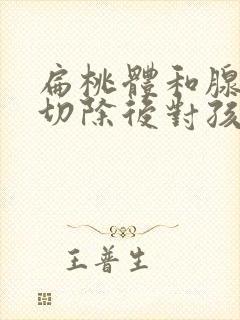 扁桃體和腺
切除後對孩
王普生